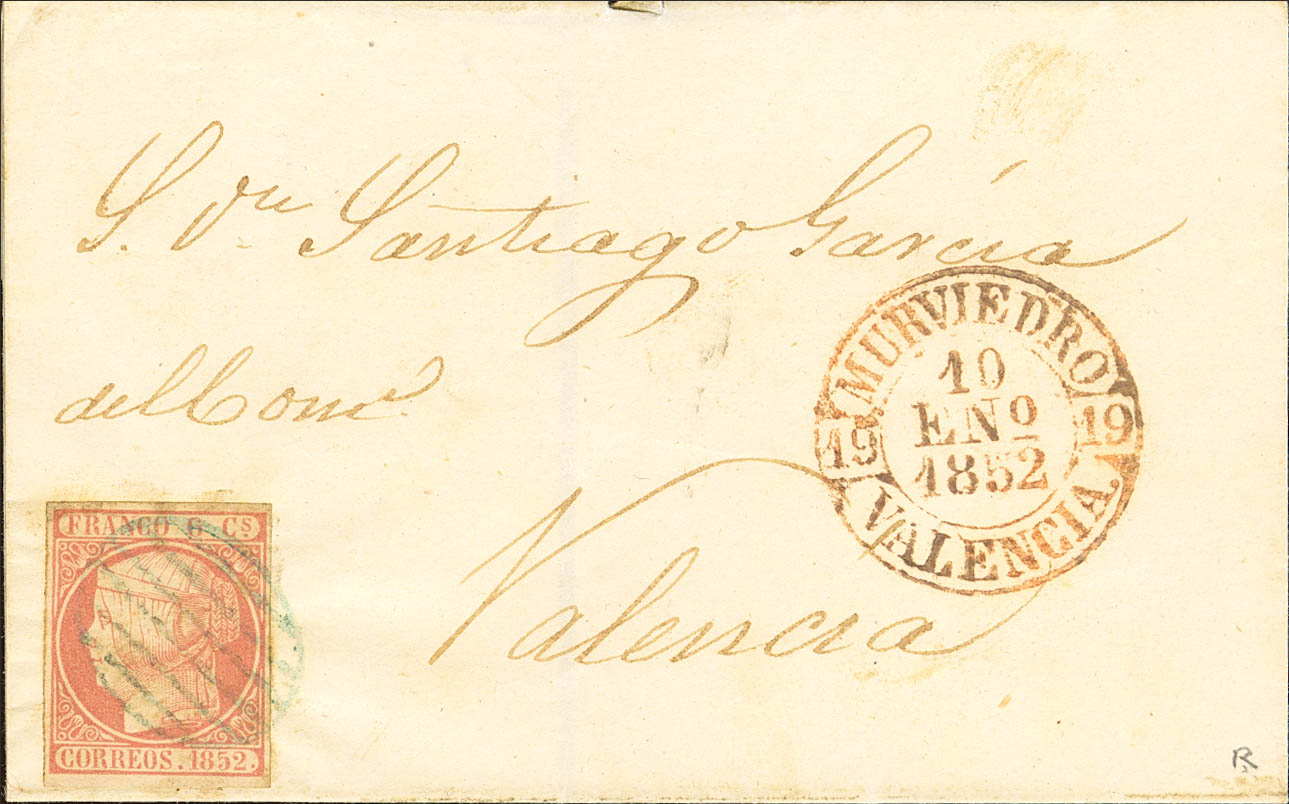 S. Dn Santiago García
del Comº
Valencia
MURVIEDRO
19 19
10
ENº
1852
VALENCIA.
FRANCO 6 Cs
CORREOS. 1852.
R